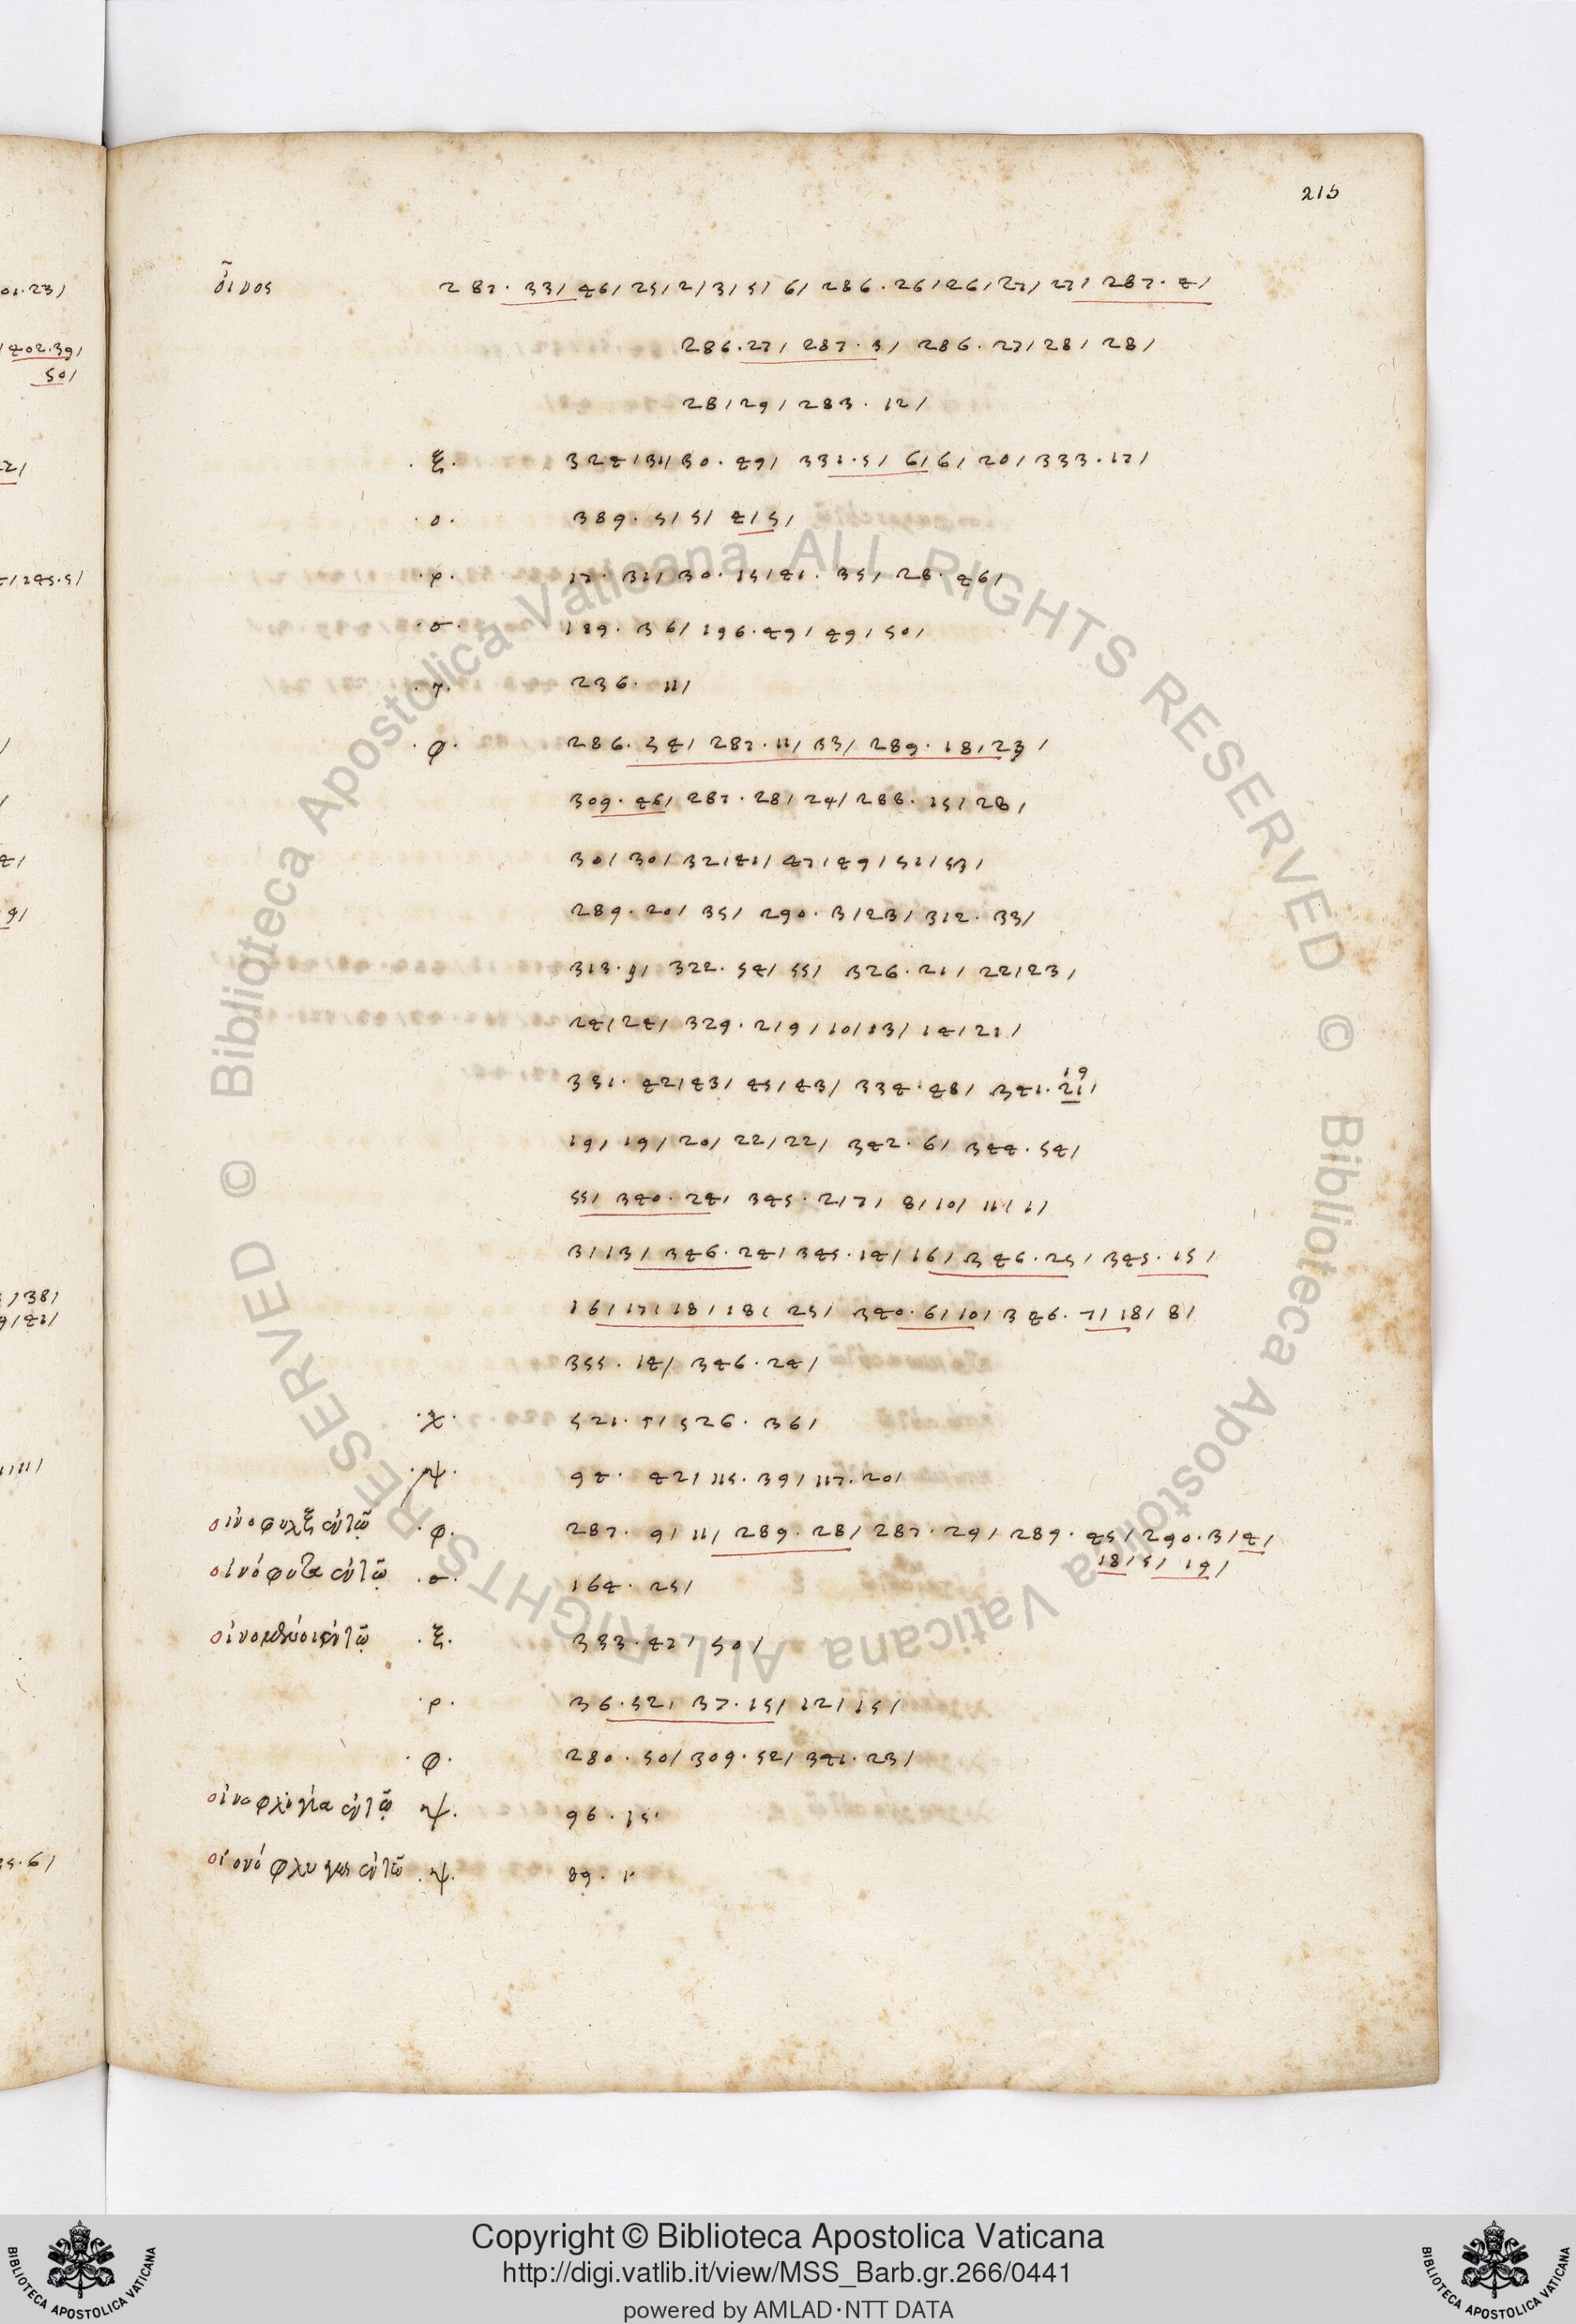 215
οἶνος 287. 33/ 46/ 25/ 2/ 3/ 5/ 6/ 286. 26/ 26/ 27/ 27/ 287. 4/
286. 27/ 287. 3/ 286. 27/ 28/ 28/
28/ 29/ 283. 12/
.ξ. 324/ 31/ 30. 49/ 331. 5/ 6/ 6/ 20/ 333. 17/
.ο. 389. 5/ 5/ 4/ 5/
.ρ. 17. 31/ 30. 15/ 41. 35/ 28. 46/
.σ. 189. 36/ 196. 49/ 49/ 50/
.τ. 236. 11/
.φ. 286. 34/ 287. 11/ 33/ 289. 18/ 23/
309. 46/ 287. 28/ 24/ 288. 15/ 28/
30/ 30/ 32/ 41/ 47/ 49/ 51/ 53/
289. 20/ 35/ 290. 3/ 23/ 312. 33/
313. 9/ 322. 54/ 55/ 326. 21/ 22/ 23/
24/ 24/ 329. 2/ 9/ 10/ 13/ 14/ 21/
331. 42/ 43/ 45/ 43/ 334. 48/ 341. 21/ 19
19/ 19/ 20/ 22/ 22/ 342. 6/ 344. 54/
55/ 340. 24/ 345. 2/ 7/ 8/ 10/ 11/ 1/
3/ 13/ 346. 24/ 345. 14/ 16/ 346. 25/ 345. 15/
16/ 17/ 18/ 18/ 25/ 340. 6/ 10/ 346. 7/ 18/ 8/
355. 14/ 346. 24/
.χ. 521. 5/ 526. 36/
.ψ. 94. 42/ 115. 39/ 117. 20/
.φ. 287. 9/ 11/ 289. 28/ 287. 29/ 289. 45/ 290. 3/ 4/
18/ 5/ 19/
.σ. 164. 25/
.ξ. 333. 42/ 50/
.ρ. 36. 52/ 37. 15/ 12/ 15/
.φ. 280. 50/ 309. 52/ 341. 23/
ψ. 96. 15.
.ψ. 89. 1.
Copyright © Biblioteca Apostolica Vaticana
http://digi.vatlib.it/view/MSS_Barb.gr.266/0441
powered by AMLAD·NTT DATA